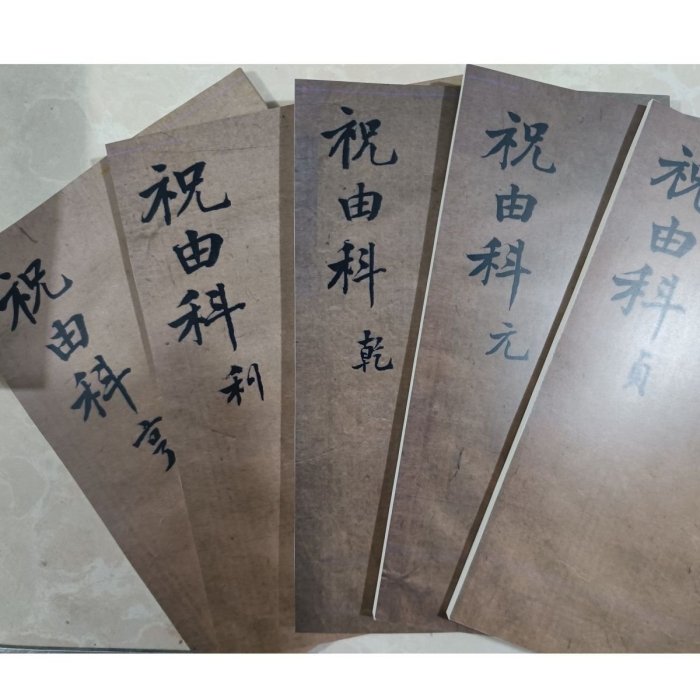 祝由科亨
祝由科利
祝由科乾
祝由科元
祝由科貞